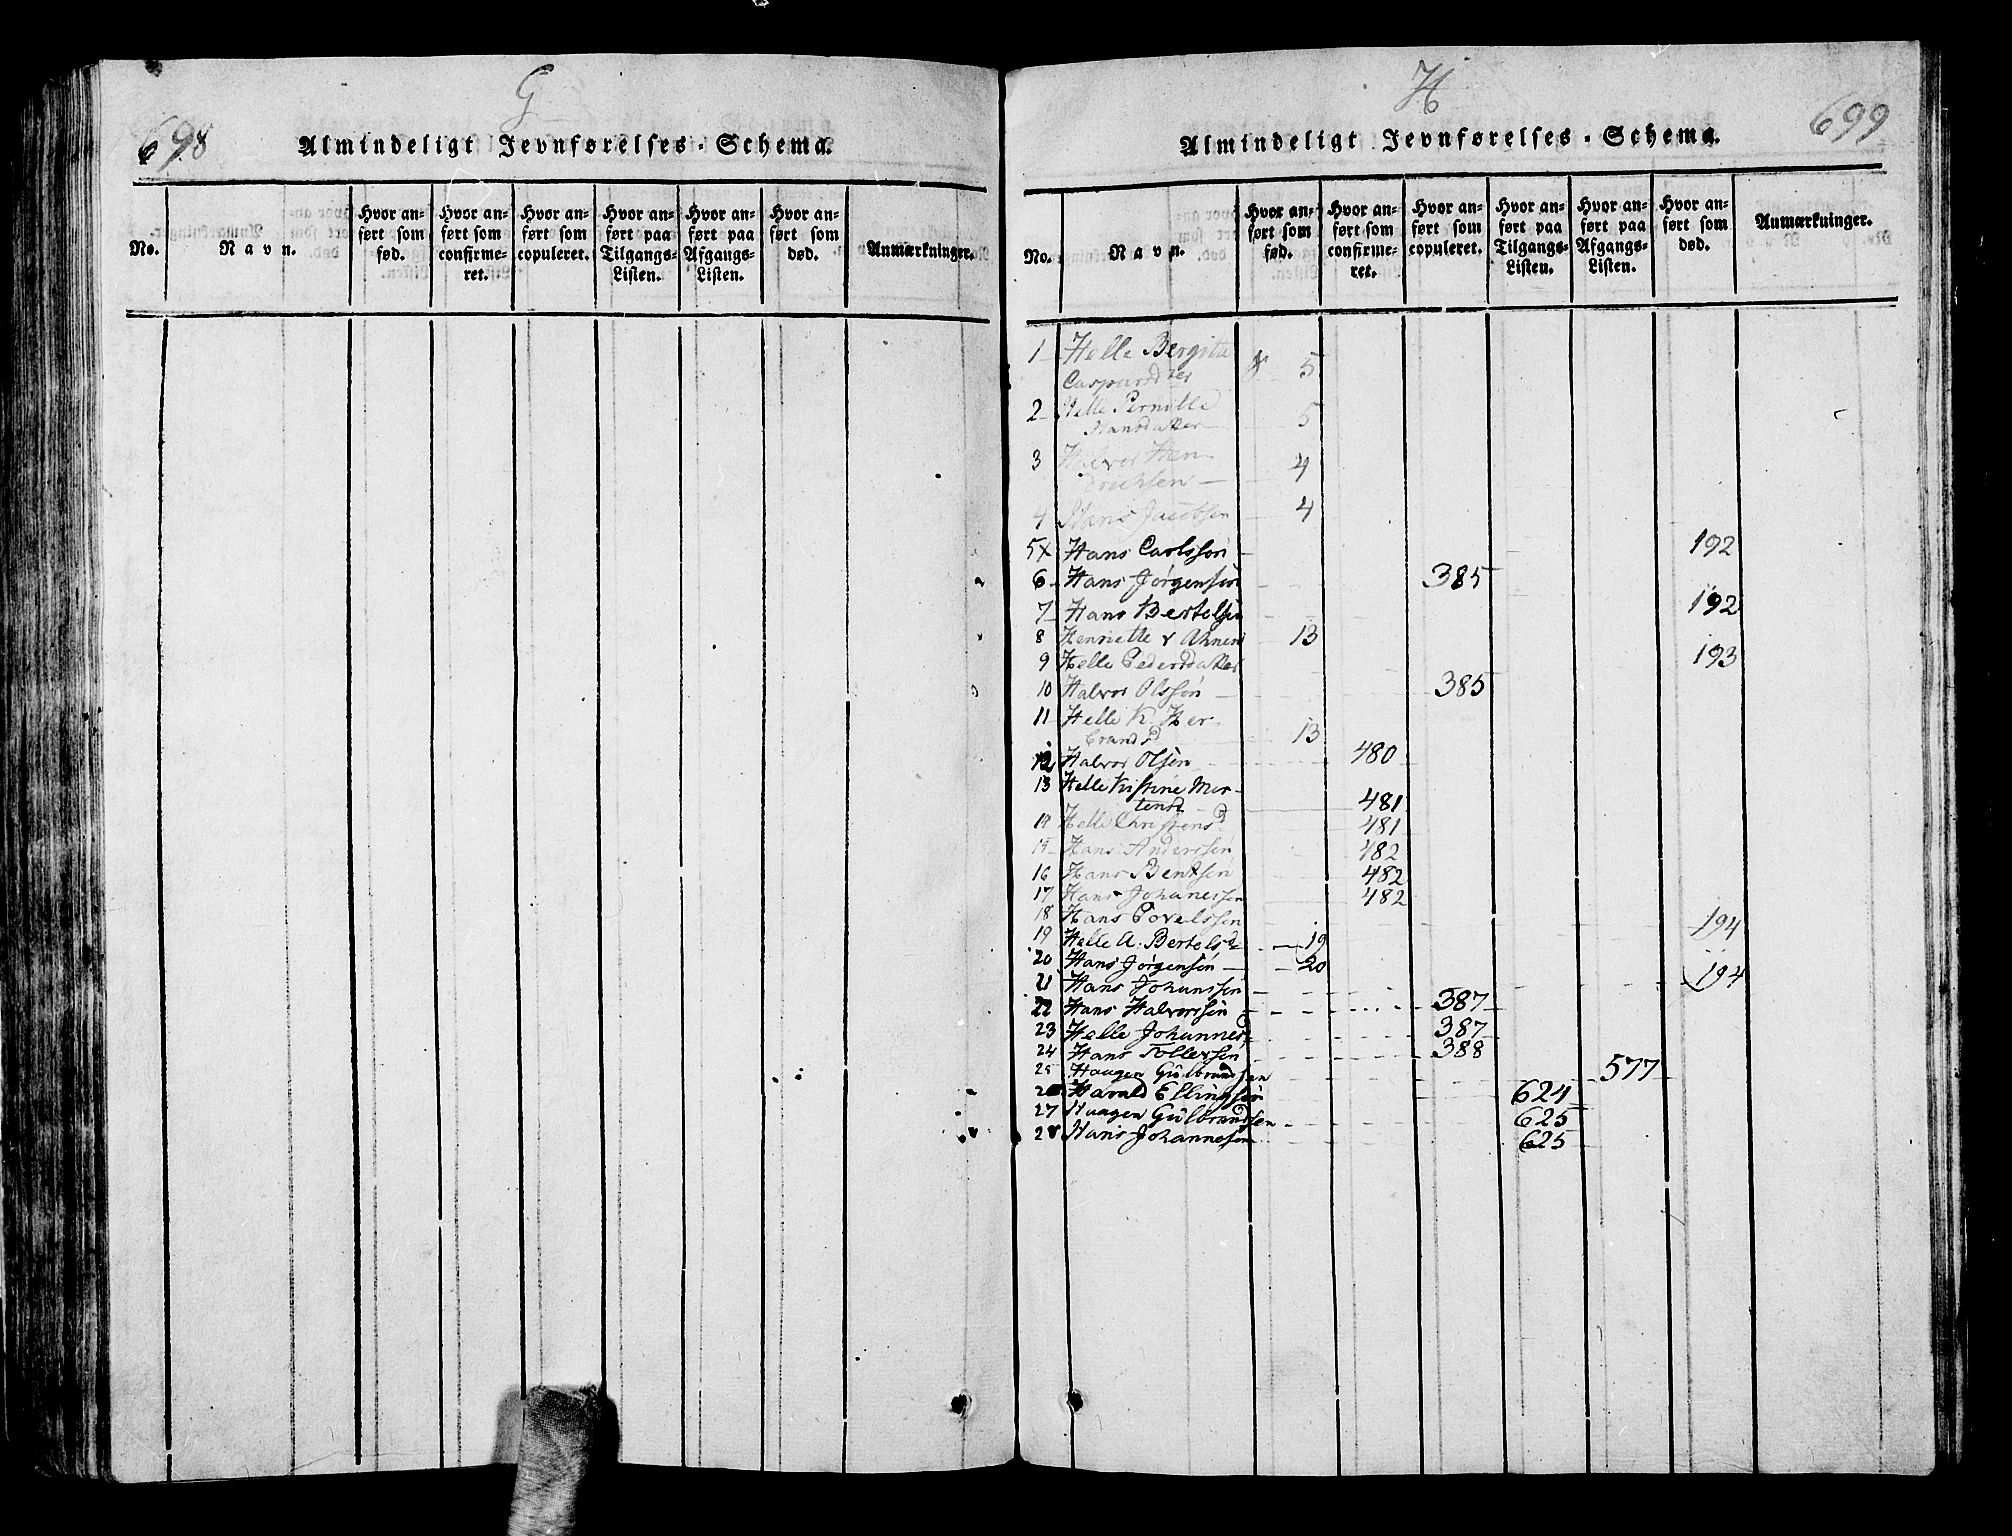 G
698
Almindeligt Jevnførelses-Schema.
No.
Navn.
Hvor anført som fød.
Hvor anført som confirmeret.
Hvor anført som copuleret.
Hvor anført paa Tilgangs-Listen.
Hvor anført paa Afgangs-Listen.
Hvor anført som død.
Anmærkninger.
H
699
Almindeligt Jevnførelses-Schema.
No.
Navn.
Hvor anført som fød.
Hvor anført som confirmeret.
Hvor anført som copuleret.
Hvor anført paa Tilgangs-Listen.
Hvor anført paa Afgangs-Listen.
Hvor anført som død.
Anmærkninger.
1 Helle Bergitte
Casparsdter 5
2 Helle Pernille
Hansdatter 5
3 Halvor Hen-
drichsen 4
4 Hans Jacobsen 4
5 x Hans Carlssøn 192
6 Hans Jörgensøn 385
7 Hans Bertelsøn 192
8 Henriette v Ahnen 13
9 Helle Pedersdatter 193
10 Halvor Olssøn 385
11 Helle K. Her-
brandsd 13
12 Halvor Olsøn 480
13 Helle Kistine Mor-
tensd 481
14 Helle Christensd 481
15 Hans Anderssøn 482
16 Hans Bentsøn 482
17 Hans Johanessen 482
18 Hans Povelssøn 194
19 Helle A. Bertelsd 19
20 Hans Jörgensøn 20
21 Hans Johanssøn 194
22 Hans Halvorssøn 387
23 Helle Johannesd 387
24 Hans Tollefsøn 388
25 Haagen Gülbrandsen 577
26 Harald Ellingsøn 624
27 Haagen Gülbrandsen 625
28 Hans Johannesøn 625